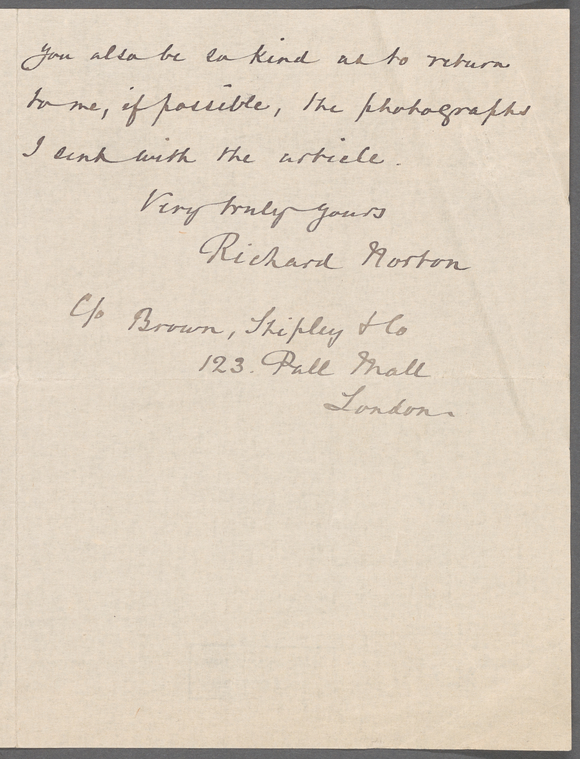 you also be so kind as to return
to me, if possible, the photographs
I sent with the article.
Very truly yours
Richard Norton
c/o Brown, Shipley & Co
123. Pall Mall
London.